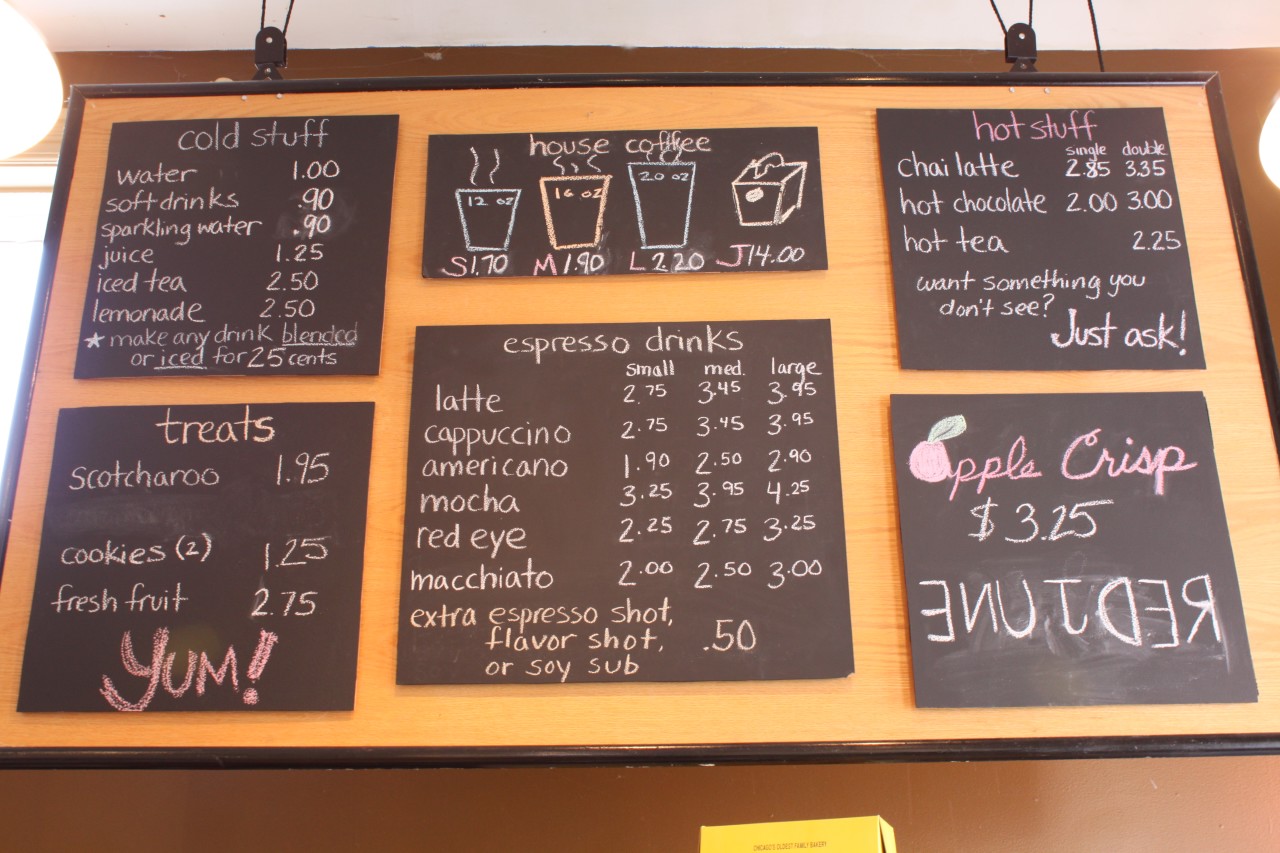 cold stuff
water 1.00
soft drinks .90
sparkling water .90
juice 1.25
iced tea 2.50
lemonade 2.50
★ make any drink blended
or iced for 25 cents
house coffee
12 oz 16 oz 20 oz
S 1.70 M 1.90 L 2.20 J 14.00
hot stuff
single double
chai latte 2.85 3.35
hot chocolate 2.00 3.00
hot tea 2.25
want something you
don't see?
Just ask!
treats
scotcharoo 1.95
cookies (2) 1.25
fresh fruit 2.75
YUM!
espresso drinks
small med. large
latte 2.75 3.45 3.95
cappuccino 2.75 3.45 3.95
americano 1.90 2.50 2.90
mocha 3.25 3.95 4.25
red eye 2.25 2.75 3.25
macchiato 2.00 2.50 3.00
extra espresso shot,
flavor shot, .50
or soy sub
apple Crisp
$3.25
REDJUNE
CHICAGO'S OLDEST FAMILY BAKERY